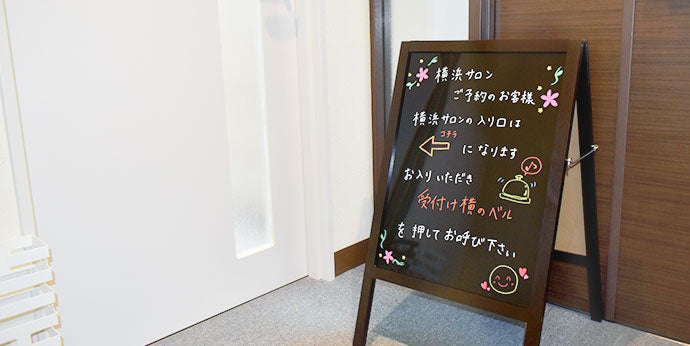 横浜サロン
ご予約のお客様
横浜サロンの入り口は
コチラ
になります
お入りいただき
受付け横のベル
を押してお呼び下さい